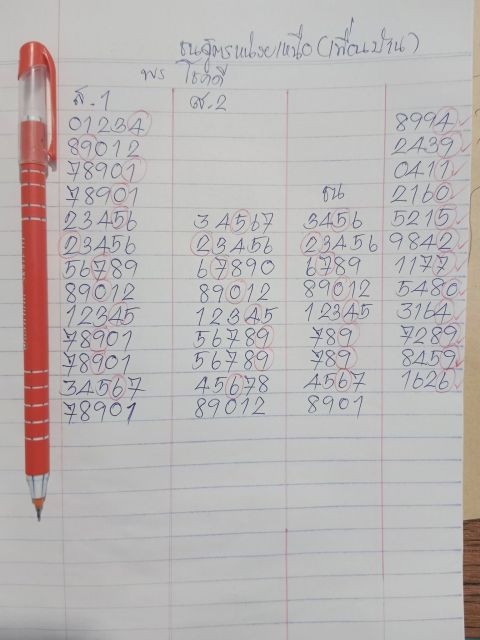 ชนสูตรหน่วยเหนือ(เพื่อนบ้าน)
พร โชคดี
ส.1 ส.2
01234 8994
89012 2439
78901 0411
78901 ชน 2160
23456 34567 3456 5215
23456 23456 23456 9842
56789 67890 6789 1177
89012 89012 89012 5480
12345 12345 12345 3164
78901 56789 789 7289
78901 56789 789 8459
34567 45678 4567 1626
78901 89012 8901